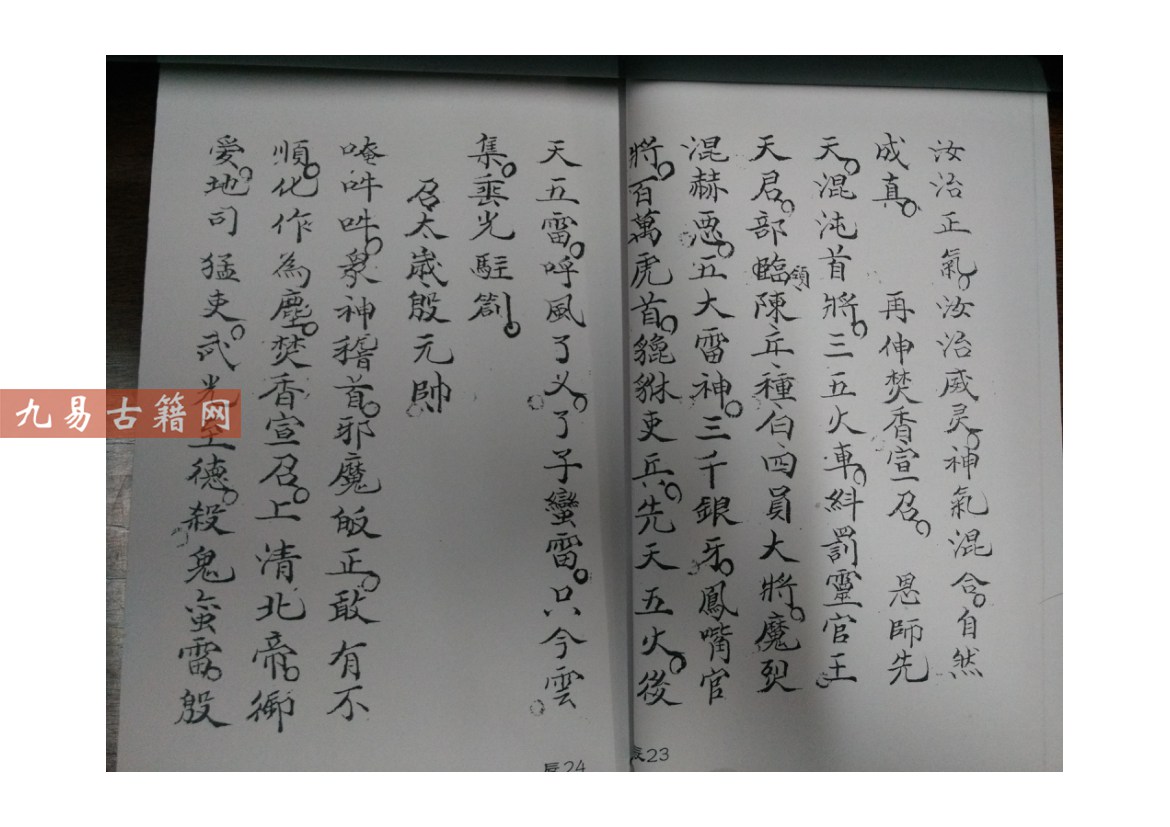 汝治正氣。汝治威灵。神氣混合。自然
成真。 再伸焚香宣召。 恩師先
天。混沌首將。三五火車。糾罰靈官王
天君。部臨領陳丘種白四員大將。魔烈
混赫惡。五大雷神。三千銀牙。鳳嘴官
將。百萬虎首。貔貅吏兵。先天五火。後
辰23
天五雷。呼風了义。了子蠻雷。只今雲
集。垂光駐箚。
召太歲殷元帥
唵吽吽。衆神稽首。邪魔皈正。敢有不
順。化作為塵。焚香宣召。上清北帝。御
愛。地司猛吏。武光至德。殺鬼蛮雷。殷
辰24
九易古籍网